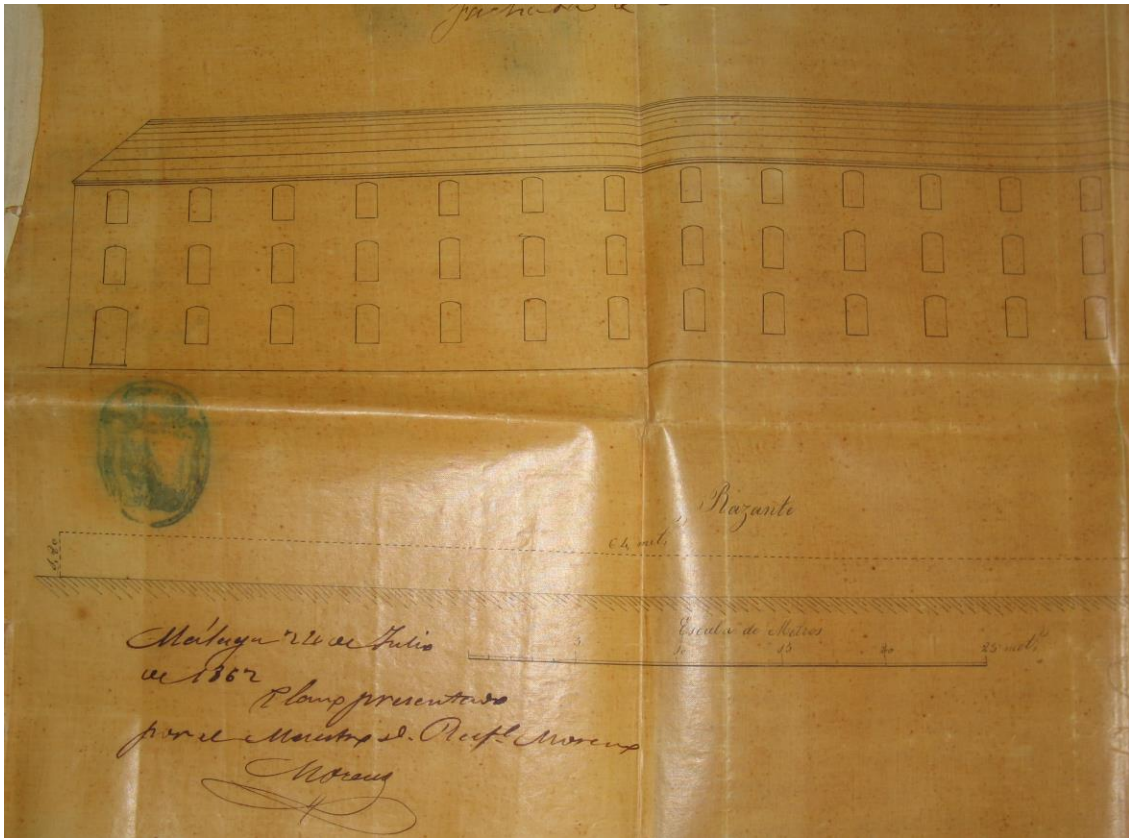 fachada
Razante
64 metˢ
Escala de Metros
5 10 15 20 25 metˢ
Málaga 24 de Julio
de 1862
Plano presentado
por el Maestro D. Rafˡ Moreno
Moreno